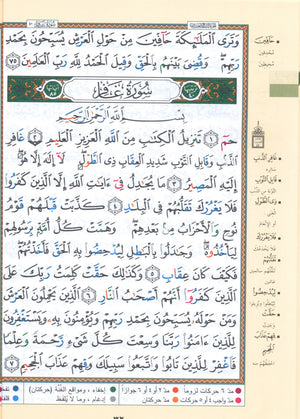 وَتَرَى الْمَلَٰٓئِكَةَ حَآفِّينَ مِنْ حَوْلِ الْعَرْشِ يُسَبِّحُونَ بِحَمْدِ
رَبِّهِمْ وَقُضِيَ بَيْنَهُم بِالْحَقِّ وَقِيلَ الْحَمْدُ لِلَّهِ رَبِّ الْعَٰلَمِينَ ٧٥
سُورَةُ غَافِرٍ
بِسْمِ اللَّهِ الرَّحْمَٰنِ الرَّحِيمِ
حمٓ ١ تَنزِيلُ الْكِتَٰبِ مِنَ اللَّهِ الْعَزِيزِ الْعَلِيمِ ٢ غَافِرِ
الذَّنۢبِ وَقَابِلِ التَّوْبِ شَدِيدِ الْعِقَابِ ذِي الطَّوْلِ لَآ إِلَٰهَ إِلَّا هُوَ
إِلَيْهِ الْمَصِيرُ ٣ مَا يُجَٰدِلُ فِيٓ ءَايَٰتِ اللَّهِ إِلَّا الَّذِينَ كَفَرُوا
فَلَا يَغْرُرْكَ تَقَلُّبُهُمْ فِي الْبِلَٰدِ ٤ كَذَّبَتْ قَبْلَهُمْ قَوْمُ
نُوحٍ وَالْأَحْزَابُ مِنۢ بَعْدِهِمْ وَهَمَّتْ كُلُّ أُمَّةٍۭ بِرَسُولِهِمْ
لِيَأْخُذُوهُ وَجَٰدَلُوا بِالْبَٰطِلِ لِيُدْحِضُوا بِهِ الْحَقَّ فَأَخَذْتُهُمْ
فَكَيْفَ كَانَ عِقَابِ ٥ وَكَذَٰلِكَ حَقَّتْ كَلِمَتُ رَبِّكَ عَلَى
الَّذِينَ كَفَرُوٓا أَنَّهُمْ أَصْحَٰبُ النَّارِ ٦ الَّذِينَ يَحْمِلُونَ الْعَرْشَ
وَمَنْ حَوْلَهُ يُسَبِّحُونَ بِحَمْدِ رَبِّهِمْ وَيُؤْمِنُونَ بِهِ وَيَسْتَغْفِرُونَ
لِلَّذِينَ ءَامَنُوا رَبَّنَا وَسِعْتَ كُلَّ شَيْءٍ رَّحْمَةً وَعِلْمًا
فَاغْفِرْ لِلَّذِينَ تَابُوا وَاتَّبَعُوا سَبِيلَكَ وَقِهِمْ عَذَابَ الْجَحِيمِ ٧
حَآفِّينَ
غَافِرِ الذَّنۢبِ
قَابِلِ التَّوْبِ
ذِي الطَّوْلِ
فَلَا يَغْرُرْكَ
تَقَلُّبُهُمْ
لِيُدْحِضُوا
حَقَّتْ
وَقِهِمْ عَذَابَ
الْجَحِيمِ
مدّ ٦ حركات لزوماً مدّ ٢ أو ٤ أو ٦ جوازاً إخفاء، ومواقع الغُنَّة (حركتان)
مدّ حركتان إدغام، وما لا يُلفَظ